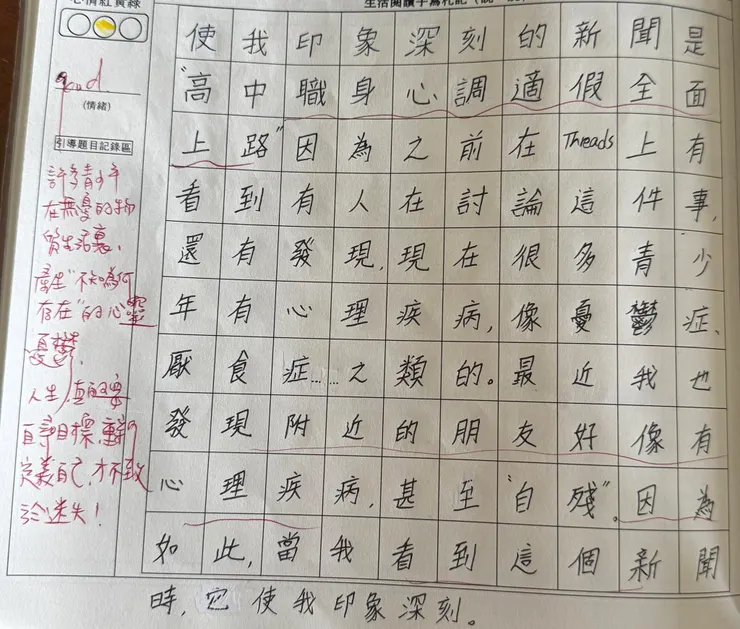 心情紅黃綠
good
(情緒)
引導題目記錄區
許多青少年
在無憂的物
質生活裏,
產生"不知為何
存在"的心靈
憂鬱,
人生,真的要
自尋目標,
定義自己,才不致
於迷失!
使我印象深刻的新聞是
"高中職身心調適假全面
上路"因為之前在Threads上有
看到有人在討論這件事,
還有發現,現在很多青少
年有心理疾病,像憂鬱症、
厭食症……之類的。最近我也
發現附近的朋友好像有
心理疾病,甚至"自殘"。因為
如此,當我看到這個新聞
時,它使我印象深刻。